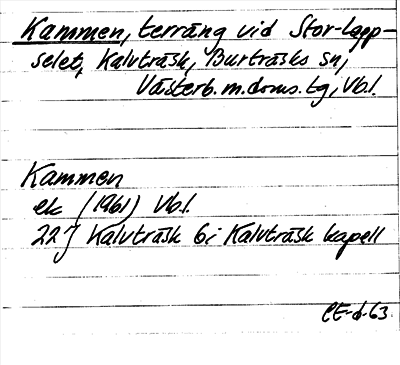 Kammen, terräng vid Stor-Lapp-
selet, Kalvträsk, Burträsks sn,
Västerb. m. doms. tg, Vbl.
Kammen
ek (1961) Vbl.
22J Kalvträsk 6i Kalvträsk kapell
CE-d-63